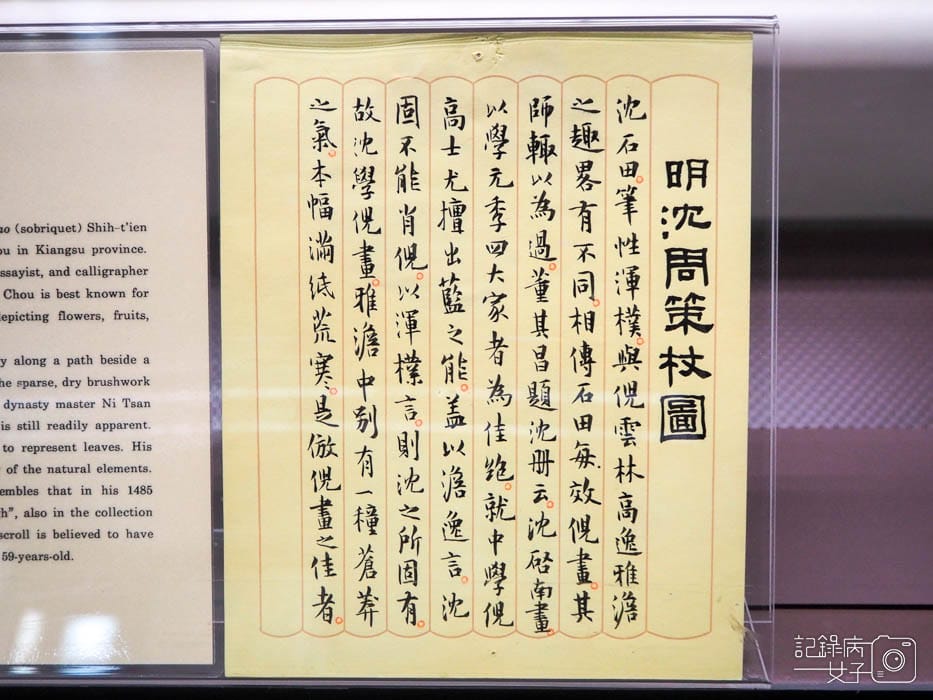 明沈周策杖圖
沈石田。筆性渾樸。與倪雲林高逸雅澹
之趣畧有不同。相傳石田每效倪畫。其
師輙以為過。董其昌題沈册云。沈啓南畫。
以學元季四大家者為佳絕。就中學倪
高士尤擅出藍之能。盖以澹逸言。沈
固不能肖倪。以渾樸言。則沈之所固有。
故沈學倪畫。雅澹中別有一種蒼莽
之氣。本幅滿紙荒寒。是倣倪畫之佳者。
(sobriquet) Shih-t'ien
in Kiangsu province.
and calligrapher
Chou is best known for
depicting flowers, fruits,
along a path beside a
sparse, dry brushwork
dynasty master Ni Tsan
is still readily apparent.
to represent leaves. His
of the natural elements.
that in his 1485
also in the collection
scroll is believed to have
59-years-old.
記錄病
女子